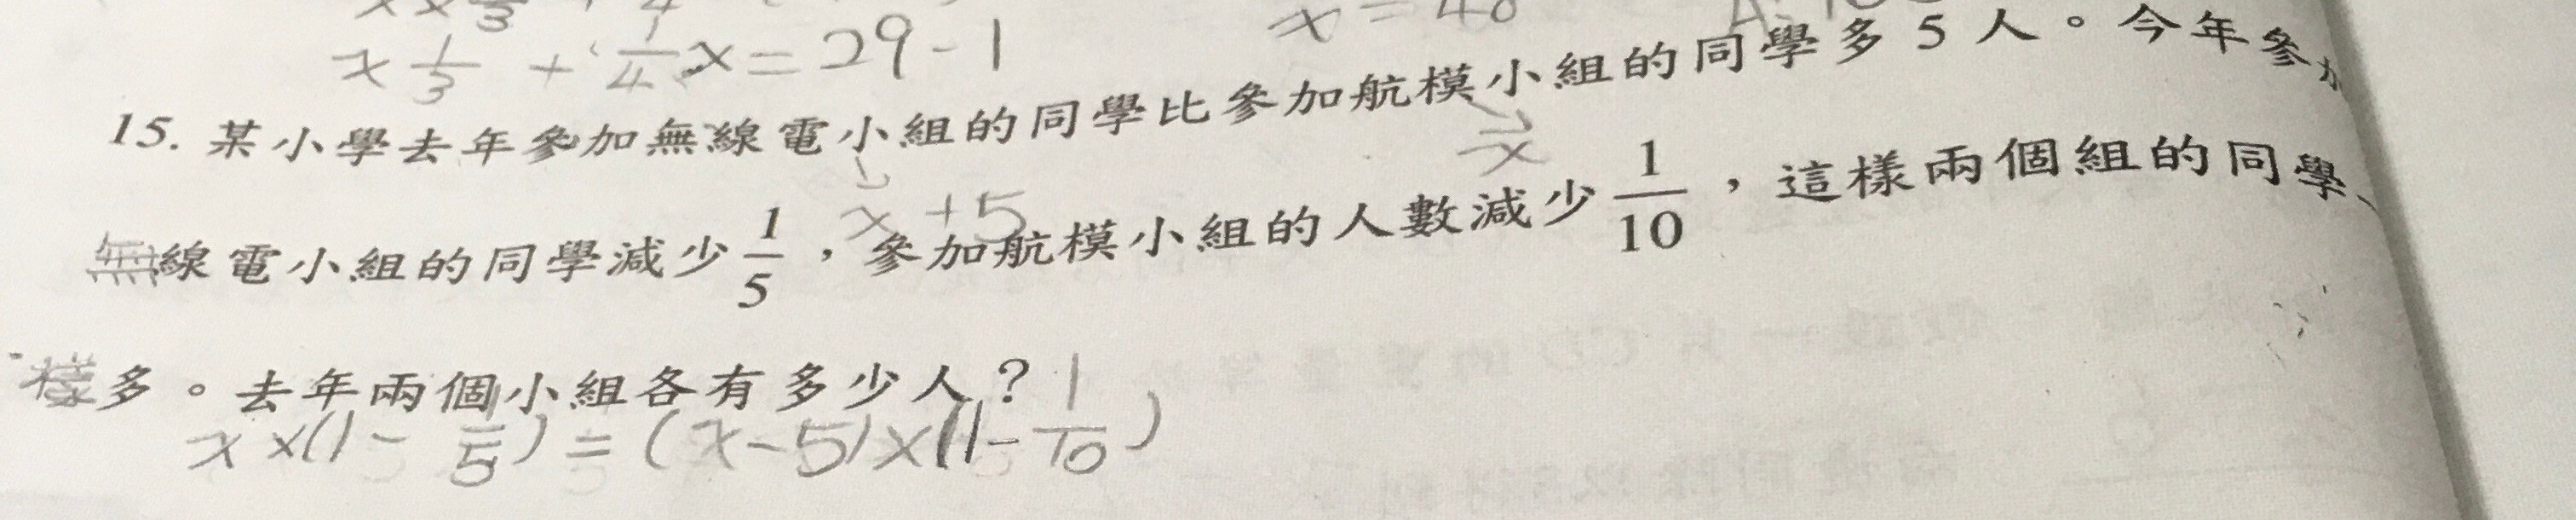 x 1/3 + 1/4 x = 29 - 1
x = 48
15. 某小學去年參加無線電小組的同學比參加航模小組的同學多 5 人。今年參加
x
x + 5
無線電小組的同學減少 1/5 ，參加航模小組的人數減少 1/10 ，這樣兩個組的同學一
樣多。去年兩個小組各有多少人？
x×(1 - 1/5) = (x-5)×(1 - 1/10)